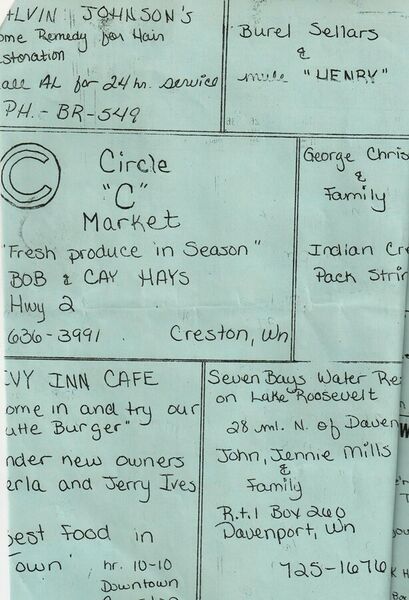 ALVIN JOHNSON'S
ome Remedy for Hair
storation
all AL for 24 hr. service
PH. - BR-549
Burel Sellars
&
mule "HENRY"
C Circle
"C"
Market
"Fresh produce in Season"
BOB & CAY HAYS
Hwy 2
636-3991 Creston, Wn
George Chris
&
Family
Indian Cr
Pack Strin
IVY INN CAFE
ome in and try our
utte Burger"
nder new owners
erla and Jerry Ives
est Food in
own" hr. 10-10
Downtown
Seven Bays Water Re
on Lake Roosevelt
28 mi. N. of Daven
John, Jennie Mills
&
Family
R.t.1 Box 260
Davenport, Wn
725-1676